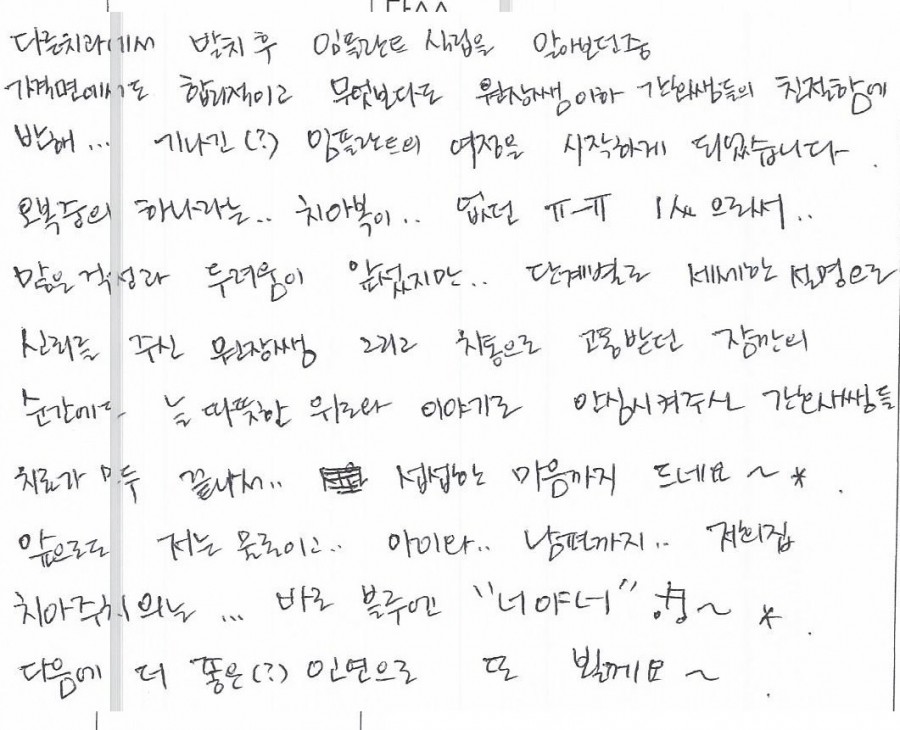 다른치과에서 발치 후 임플란트 식립을 알아보던중
가격면에서도 합리적이고 무엇보다도 원장쌤이하 간호쌤들의 친절함에
반해... 기나긴(?) 임플란트의 여정을 시작하게 되었습니다.
오복중의 하나라는.. 치아복이.. 없던 ㅠ-ㅠ 1人 으로써..
많은 걱정과 두려움이 앞섰지만.. 단계별로 세세한 설명으로
신뢰를 주신 원장쌤 그리고 치통으로 고통받던 잠깐의
순간에도 늘 따뜻한 위로와 이야기로 안심시켜주신 간호사쌤들
치료가 모두 끝나서.. 섭섭한 마음까지 드네요~*.
앞으로도 저는 물론이고.. 아이랑.. 남편까지.. 저희집
치아주치의는 ... 바로 블루에 "너야너" ~*.
다음에 더 좋은(?) 인연으로 또 뵐께요~.